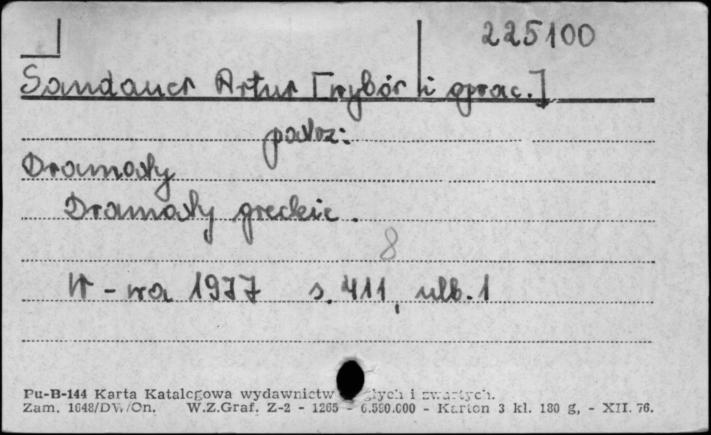 225100
Sandauer Artur [wybór i oprac.]
patrz:
Dramaty
Dramaty greckie.
8
W-wa 1977 s. 411, nlb. 1
Pu-B-144 Karta Katalogowa wydawnictw i zwartych.
Zam. 1648/DW/On. W.Z.Graf. Z-2 - 1265 - 6.590.000 - Karton 3 kl. 180 g, - XII. 76.